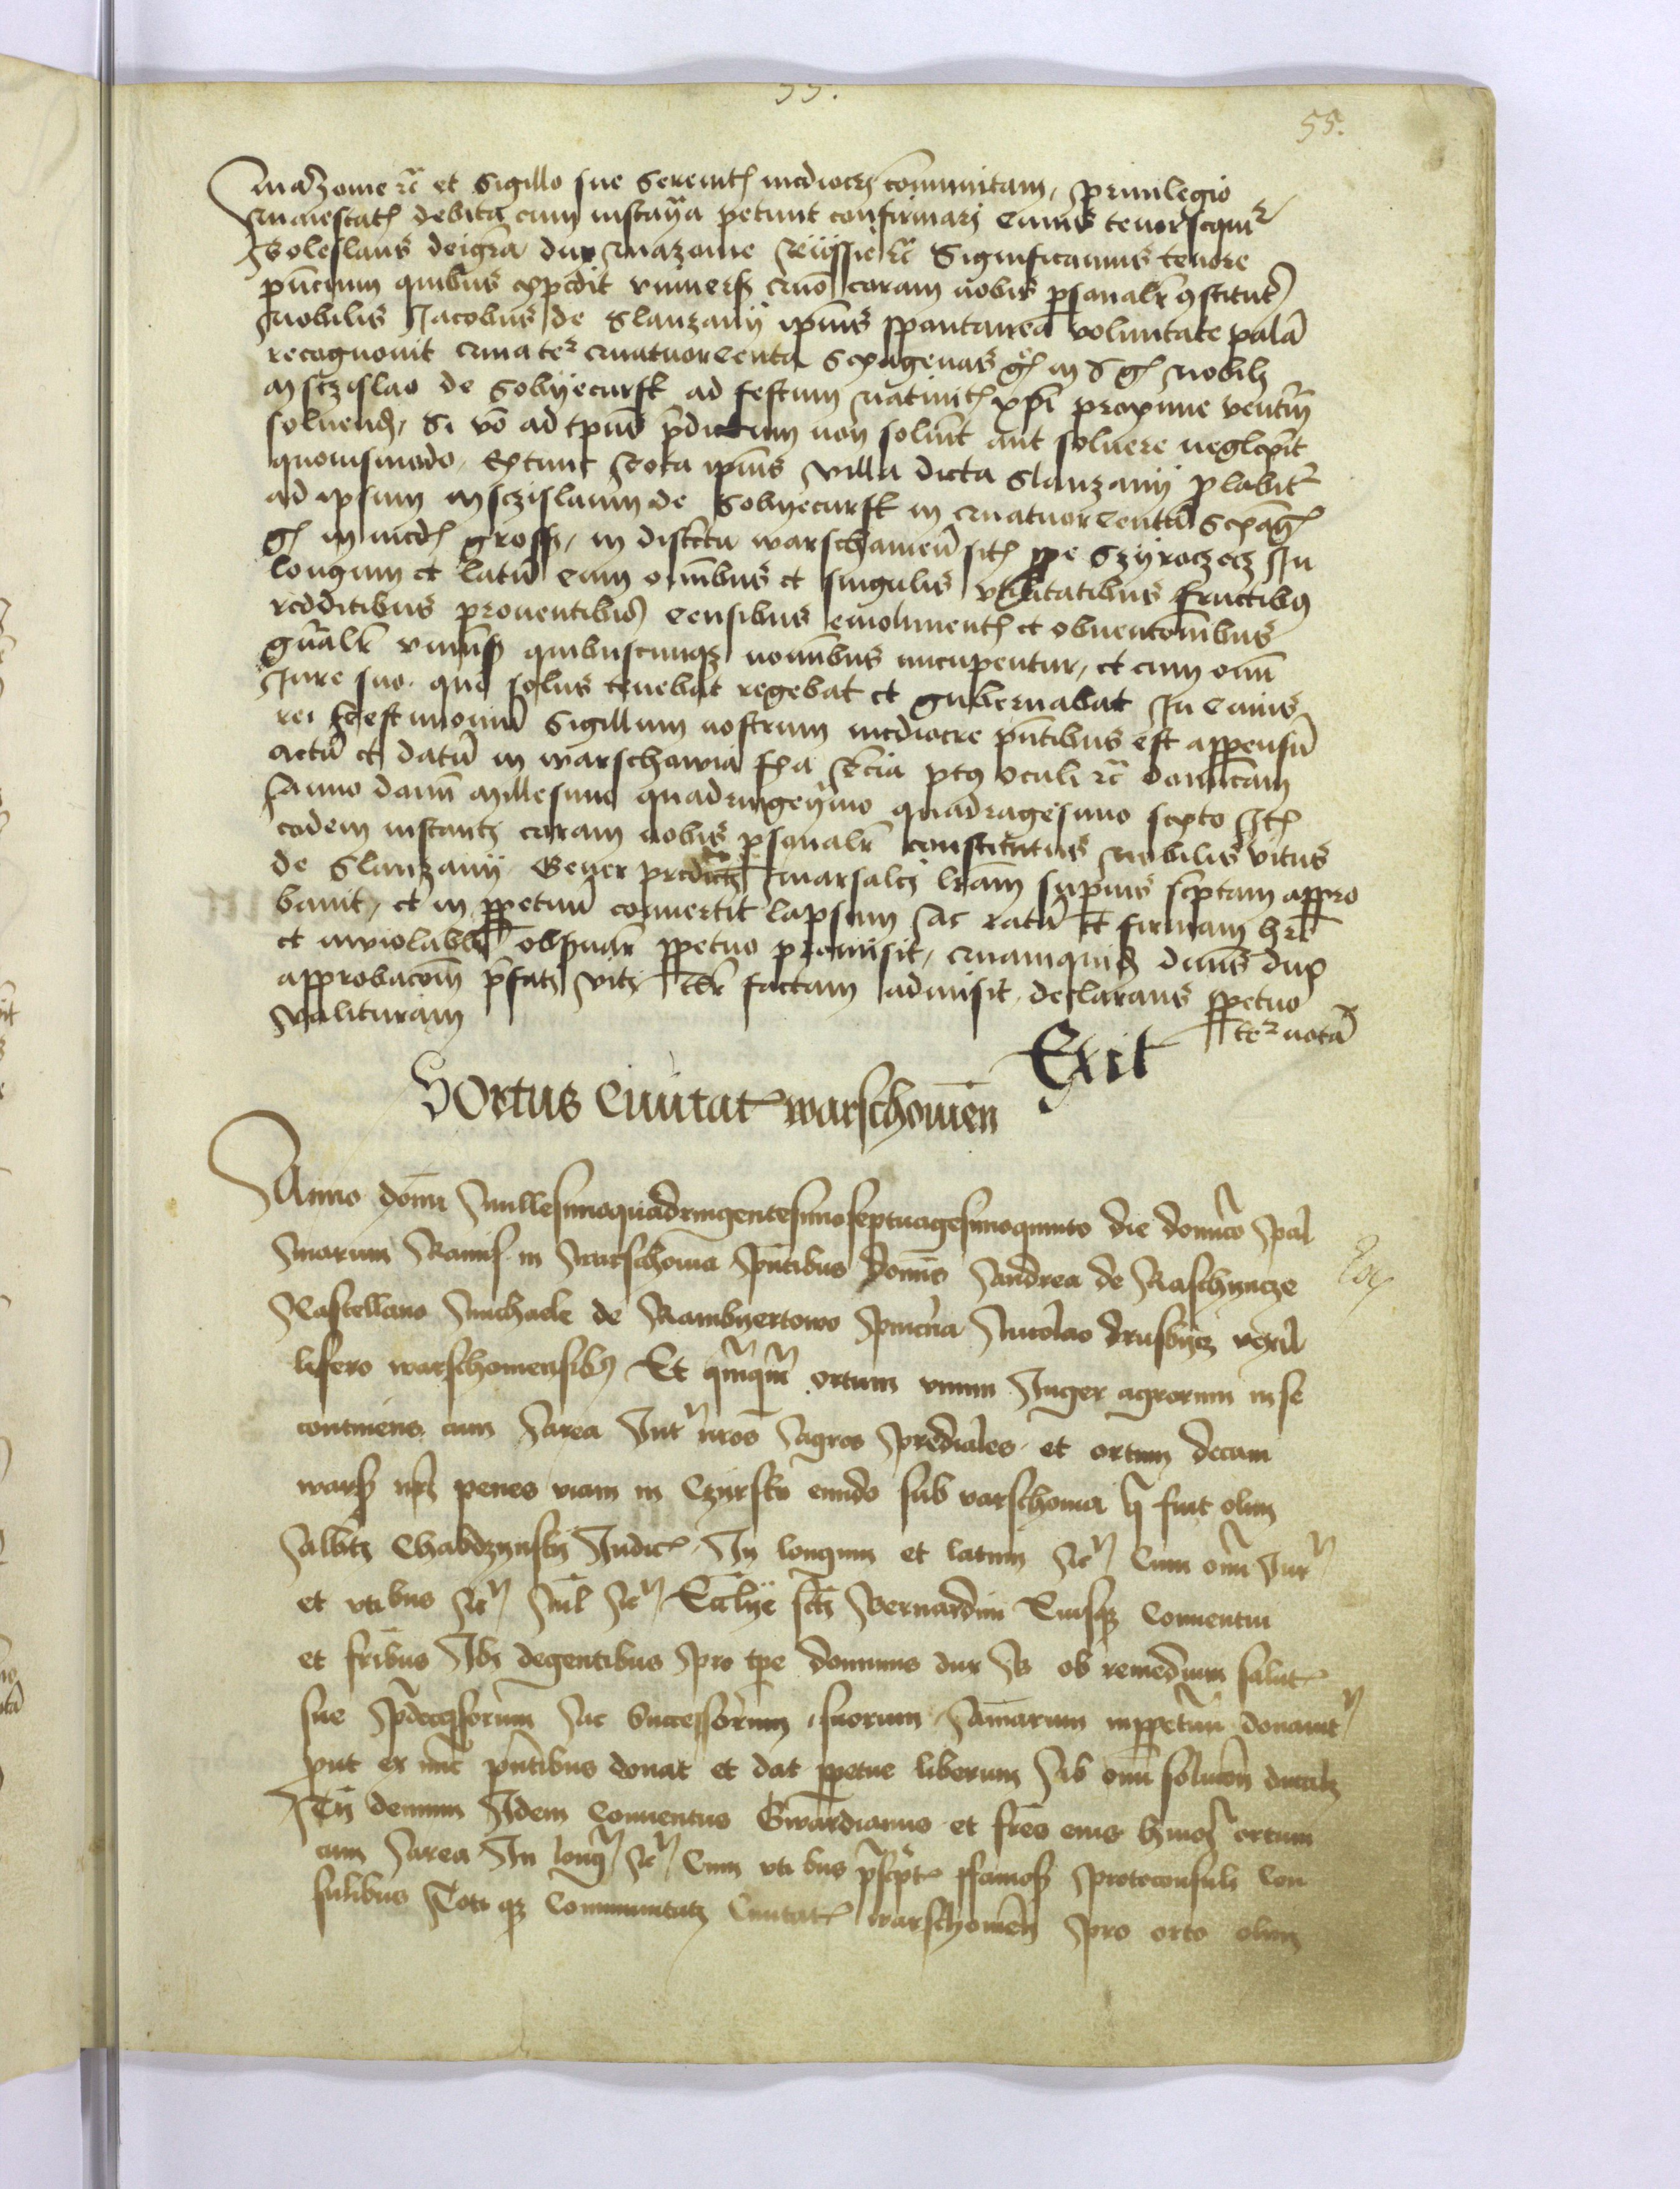 55.
55.
Mazouie etc et Sigillo sue Serenitatis mediocri communitam, priuilegio
Maiestatis debita cum instancia petunt confirmari Cuius tenor sequitur
Boleslaus dei gracia dux Mazouie Russie etc Significamus tenore
presencium quibus expedit vniuersis Quomodo coram nobis personaliter constitutus
Nobilis Jacobus de Slanzany ipsius spontanea voluntate palam
recognouit Quia tenetur Quatuorcenta Sexagenas grossorum in medio grossis Nobili
Msczislao de Sobyecursk ad festum Natiuitatis Christi proxime venturum
soluendas, Si vero ad tempus predictum non soluerit aut soluere neglexerit
quouismodo, Extunc Tota ipsius villa dicta Slanzany perlabitur
ad ipsum Msczislaum de Sobyecursk in Quatuorcentum Sexagenis
grossorum in mediis grossis, in districtu warschouiensi sita prope Szyroczecz In
longum et latum cum omnibus et singulis vtilitatibus fructibus
redditibus prouentibus Censibus emolimentis et obuencionibus
generaliter vniuersis quibuscunque nominibus nuncupentur, et cum omni
Jure suo quo solus tenebat regebat et gubernabat In Cuius
rei testimonium Sigillum nostrum mediocre presentibus est appensum
Actum et datum in warschowia feria Tercia post Oculi etc dominicam
Anno domini Millesimo quadringentesimo quadragesimo sexto Item
eodem instanti coram nobis personaliter constitutus Nobilis Vitus
de Slanzany Gener predicti Marsalci literam superius scriptam appro
bauit, et in perpetuum conuertit lapsum Ac ratam et firmam habere
et inviolabiliter obseruare perpetuo promisit, Quamquidem dominus dux
approbacionem prefati Viti taliter factam admisit declarans perpetuo
Valituram
Exit
Hortus Ciuitatis warschouien
Anno domini Millesimoquadringentesimoseptuagesimoquinto die dominico Pal
marum Ramis in Warschouia Presentibus dominis Andrea de Raschyncze
Castellano Michaele de Rambyertowo Pincerna Nicolao Drusbycz vexil
lifero warschouiensibus Et quamquam ortum vnum Juger agrorum in se
continens cum Area Inter nostros Agros Prediales et ortum decani
wars nostri penes viam in Czyrsko eundo sub varschouia qui fuit olim
Alberti Chabdzynsky Judicis In longum et latum etc Cum omni Jure
et vtibus etc Simul etc Ecclesie sancti Bernardini Eiusque Conuentui
et fratribus Ibi degentibus Pro tempore dominus dux B ob remedium salutis
sue Predecessorum Ac successorum suorum Animarum inperpetuum donauit
prout ex nunc presentibus donat et dat perpetue liberum Ab omni solucione ducali
Tamen demum Idem Conuentus Gwardianus et fratres eius huiusmodi ortum
cum Area In longum etc Cum vtibus prescriptis famosis Protoconsuli Con
sulibus Totique Communitati Ciuitatis warschouien Pro orto olim